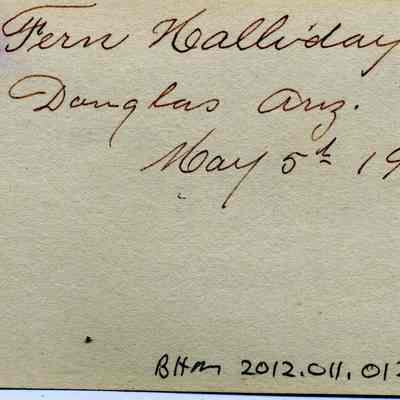 Fern Halliday
Douglas Ariz.
May 5th 19
BHM 2012.011.01